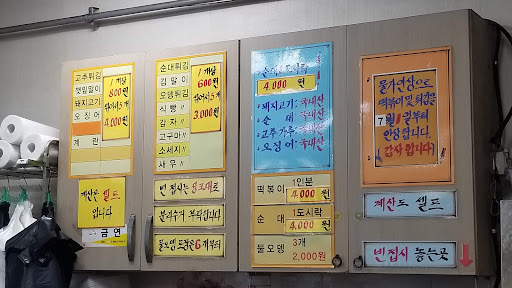 고추튀김
깻잎말이
돼지고기
오징어
계란
1개당
800원
튀어서 5개
4,000원
계산은 셀프
입니다
금연
순대튀김
김말이
오뎅튀김
식빵
감자
고구마
소세지
새우
1개당
600원
튀어서 5개
3,000원
빈 접시는 싱크대로
분리수거 부탁합니다
물오뎅 포장은 6개부터
4,000원
돼지고기: 국내산
순대: 국내산
고추가루: 국내산
오징어: 국내산
떡볶이 1인분 4,000원
순대 1도시락 4,000원
물오뎅 3개 2,000원
물가인상으로
떡볶이 및 튀김은
7월 1일부터
인상합니다.
감사합니다!
계산도 셀프
빈접시 놓는곳